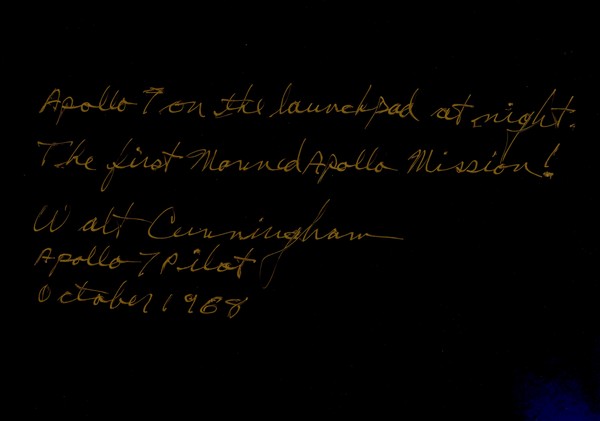 Apollo 7 on the launchpad at night.
The first Manned Apollo Mission!
Walt Cunningham
Apollo 7 Pilot
October 1968